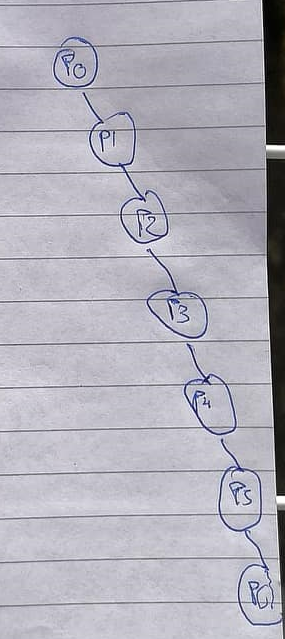 P0
P1
P2
P3
P4
P5
P6